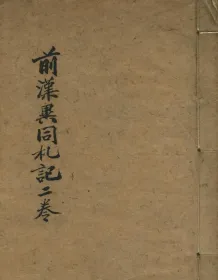 前漢異同札記二卷